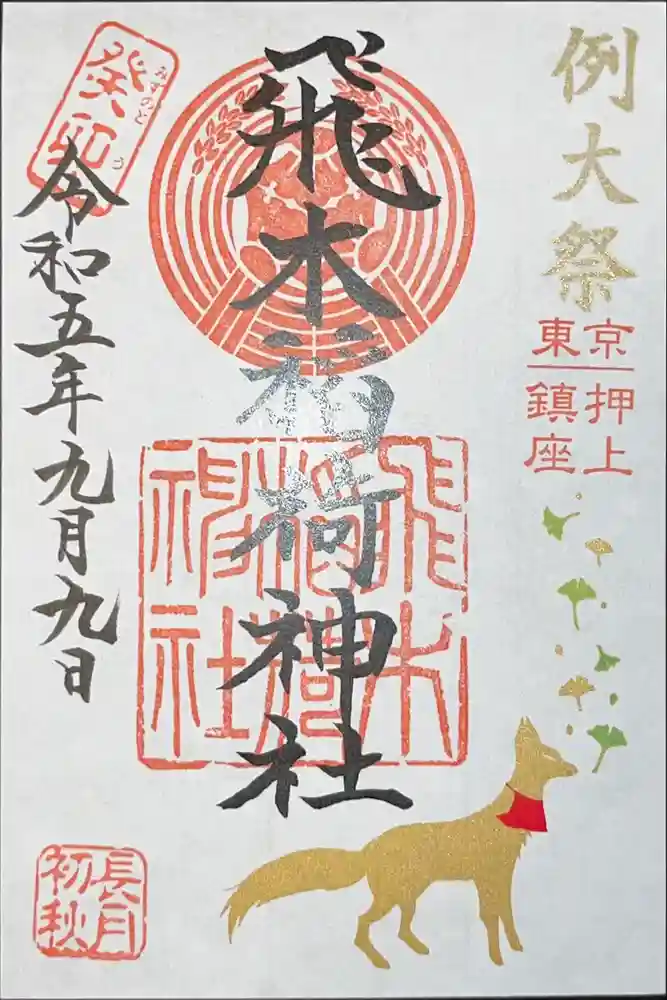 例大祭
東京押上鎮座
飛木稲荷神社
飛木
稲荷
神社
癸卯
みずのと
う
令和五年九月九日
長月
初秋